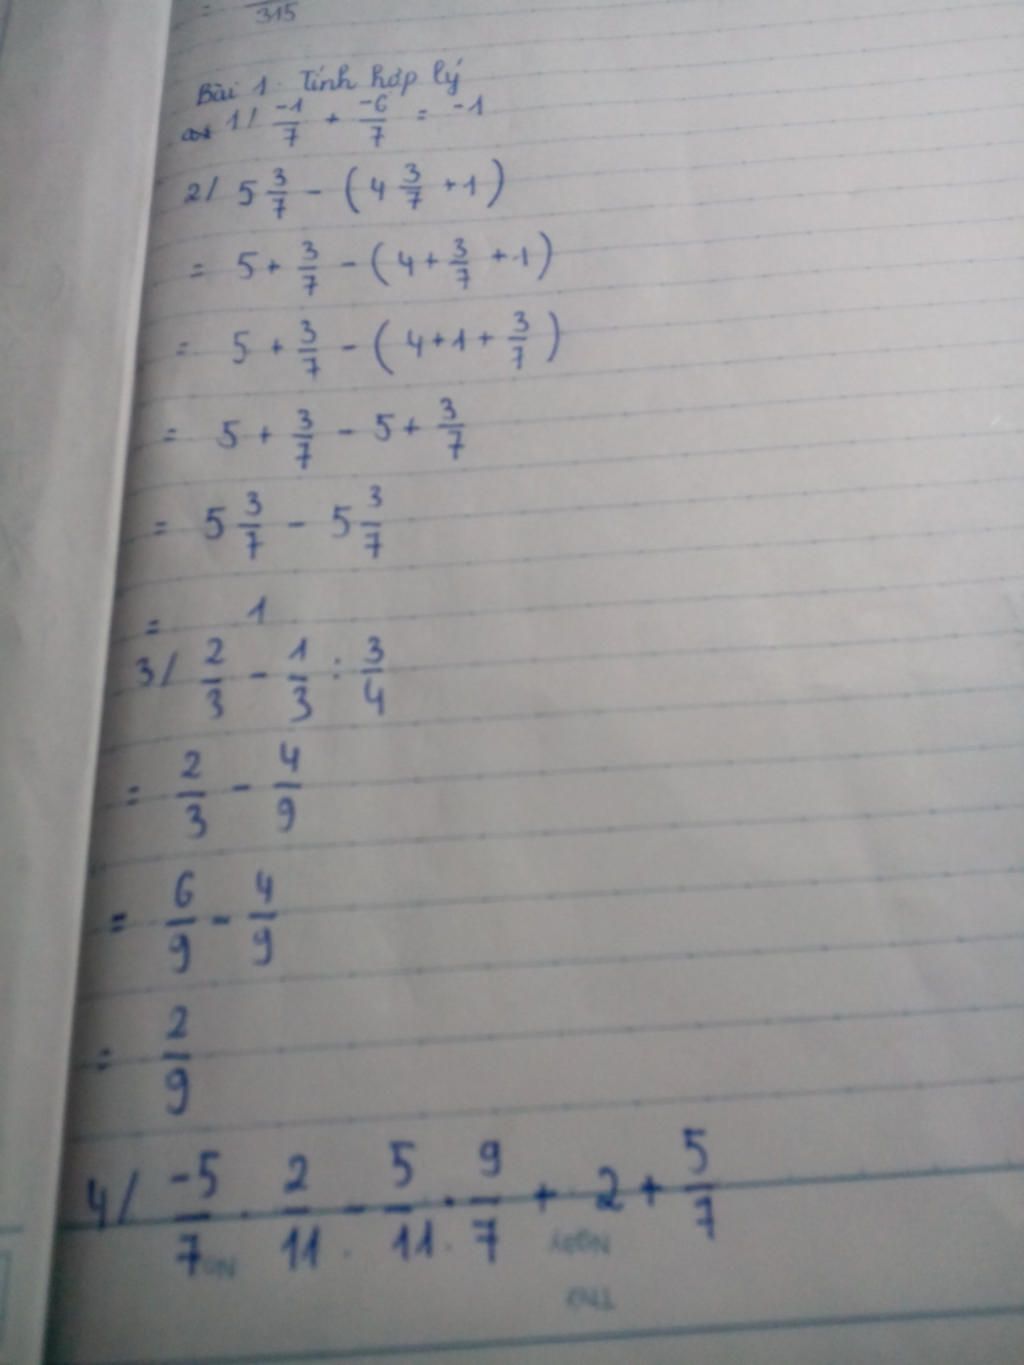 315
Bài 1. Tính hợp lý
1/ -1/7 + -6/7 = -1
2/ 5 3/7 - (4 3/7 + 1)
= 5 + 3/7 - (4 + 3/7 + 1)
= 5 + 3/7 - (4 + 1 + 3/7)
= 5 + 3/7 - 5 + 3/7
= 5 3/7 - 5 3/7
= 1
3/ 2/3 - 1/3 : 3/4
= 2/3 - 4/9
= 6/9 - 4/9
= 2/9
4/ -5/7 . 2/11 - 5/11 . 9/7 + 2 + 5/7
No
Ngày
Thứ